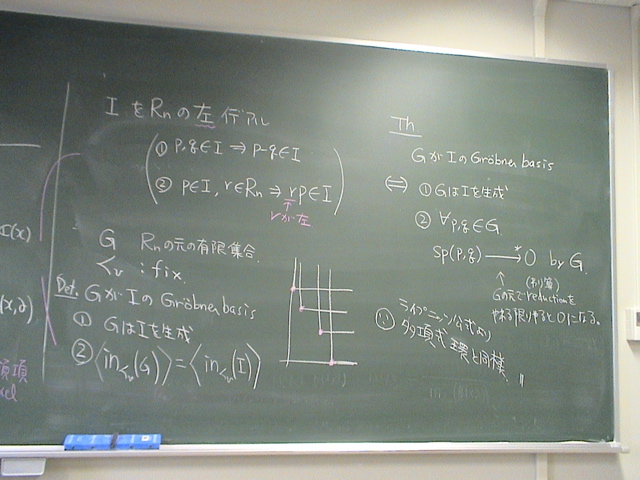 I(x)
(x,∂)
I を Rn の 左 イデアル
① p,q∈I ⇒ p-q∈I
② p∈I, r∈Rn ⇒ rp∈I
rが左
G Rnの元の有限集合.
: fix.
Def. GがIのGröbner basis
① GはIを生成
② ⟨in<(G)⟩=⟨in<(I)⟩
Th
GがIのGröbner basis
⇔ ①GはIを生成
② ∀p,q∈G.
sp(p,q) →* 0 by G.
Gの元でreductionを
やれる限りやると0になる。
ライプニッツ公式より
多項式環と同様.